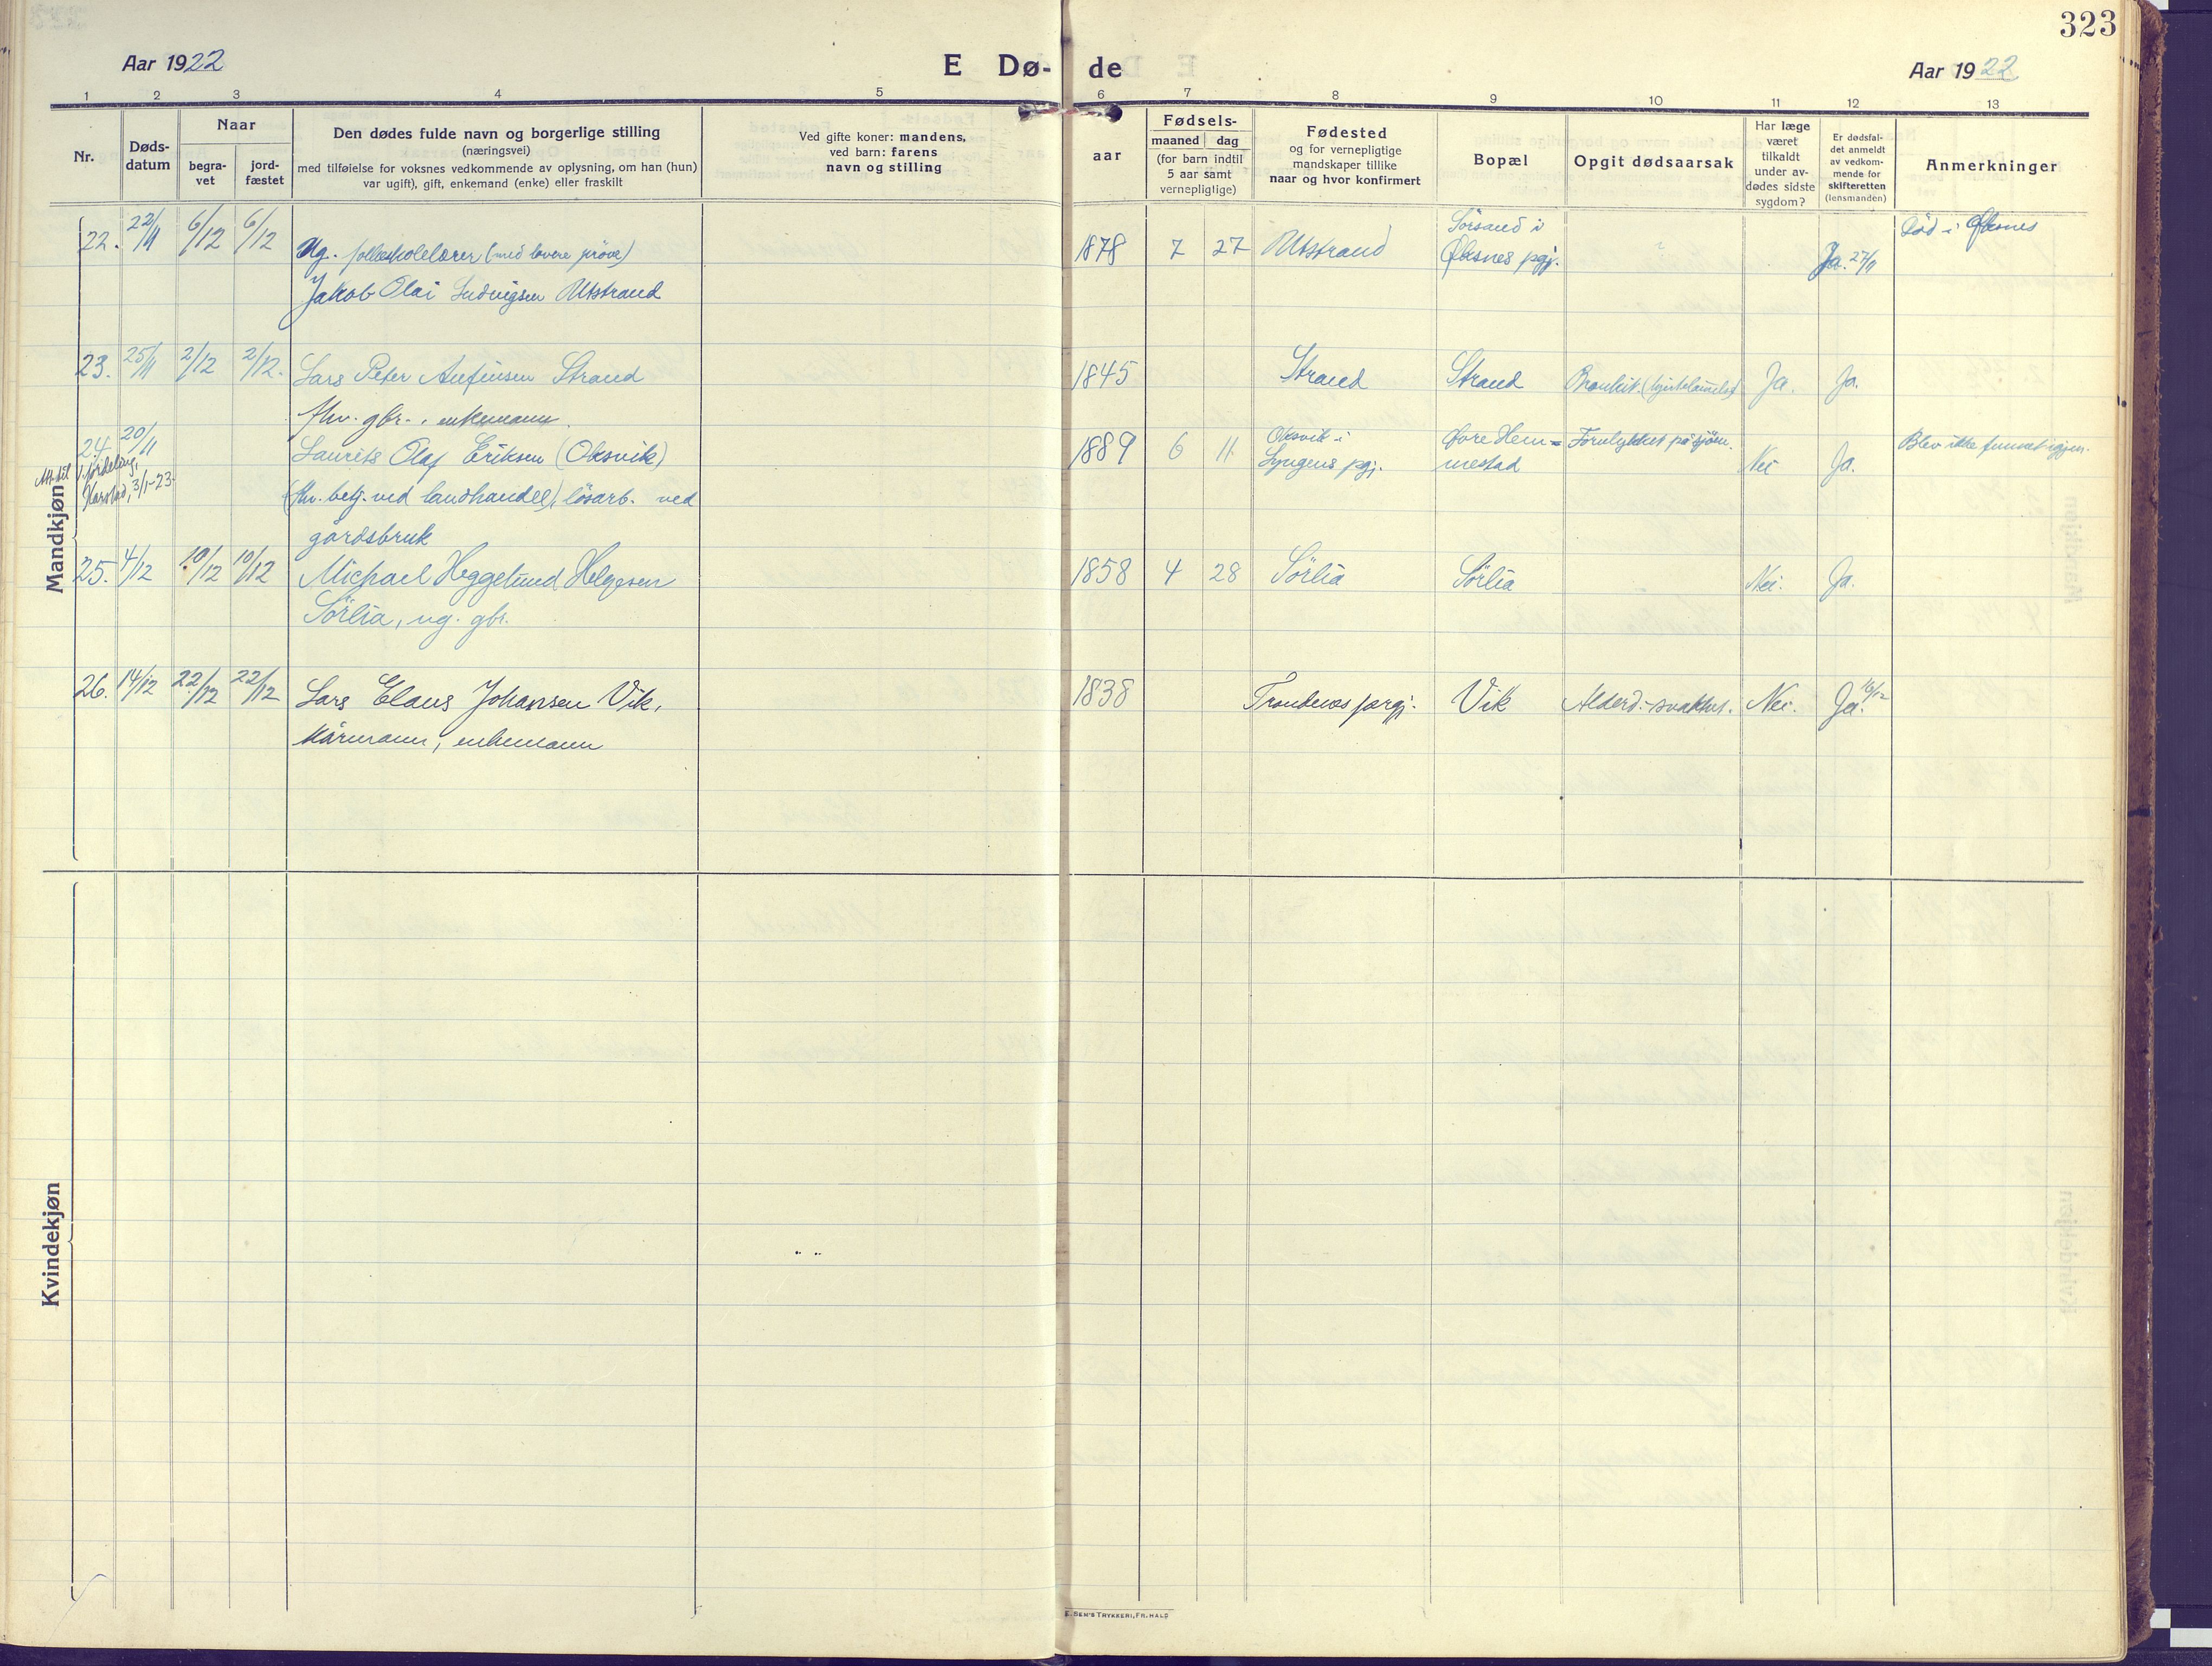 323
Aar 1922
E Dø-
de
Aar 1922
1 2 3 4 5 6 7 8 9 10 11 12 13
Nr.
Døds-
datum
Naar
begra-
vet
jord-
fæstet
Den dødes fulde navn og borgerlige stilling
(næringsvei)
med tilføielse for voksnes vedkommende av oplysning, om han (hun)
var ugift), gift, enkemand (enke) eller fraskilt
Ved gifte koner: mandens,
ved barn: farens
navn og stilling
Fødsels-
aar
maaned dag
(for barn indtil
5 aar samt
vernepligtige)
Fødested
og for vernepligtige
mandskaper tillike
naar og hvor konfirmert
Bopæl
Opgit dødsaarsak
Har læge
været
tilkaldt
under av-
dødes sidste
sygdom?
Er dødsfal-
det anmeldt
av vedkom-
mende for
skifteretten
(lensmanden)
Anmerkninger
Mandkjøn
22. 22/11 6/12 6/12
Ug. folkeskolelærer (med lavere prøve)
Jakob Olai Ludvigsen Utstrand
1878 7 27 Utstrand
Sørsand i
Øksnes pgj.
Ja. 27/11
Död i Øksnes
23. 25/11 2/12 2/12. Lars Peter Anfinsen Strand
fhv. gbr., enkemann.
1845 Strand Strand Bronkit. Ja. Ja.
24 20/11 Laurits Olaf Eriksen (Oksvik)
(fhv. betj. ved landhandel), løsarb. ved
gårdsbruk
Harstad, 3/1-23.
1889 6 11. Oksvik i
Lyngens pgj.
Øvre Hem-
mestad
Forulykket på sjøen. Nei Ja.
Blev ikke funnet igjen.
25. 4/12 10/12 10/12 Michael Heggelund Helgesen
Sörlia, ug. gbr.
1858 4 28 Sörlia Sörlia Nei. Ja.
26. 14/12 22/12 22/12 Lars Elaus Johansen Vik,
kårmann, enkemann
1838 Trondenes prgj. Vik Alderd.-svakhet. Nei. Ja. 16/12
Kvindekjøn